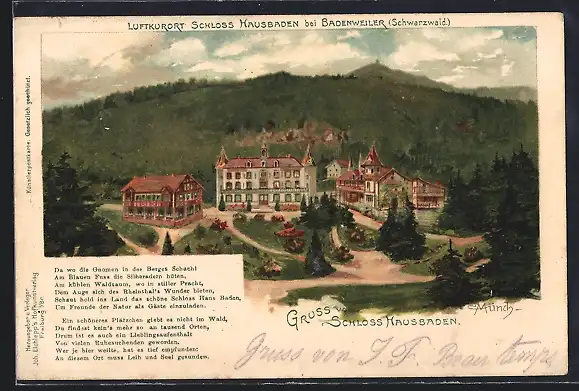 LUFTKURORT SCHLOSS HAUSBADEN bei BADENWEILER (Schwarzwald.)
Künstlerpostkarte. Gesetzlich geschützt.
Herausgeber u. Verleger
Joh. Elchlepp's Hofkunstverlag
Freiburg i/Br.
Da wo die Gnomen in des Berges Schacht
Am Blauen Fuss die Silberadern hüten,
Am kühlen Waldsaum, wo in stiller Pracht,
Dem Auge sich des Rheinthal's Wunder bieten,
Schaut hold ins Land das schöne Schloss Haus Baden,
Um Freunde der Natur als Gäste einzuladen.
Ein schöneres Plätzchen giebt es nicht im Wald,
Du findest kein's mehr so an tausend Orten,
Drum ist es auch ein Lieblingsaufenthalt
Von vielen Ruhesuchenden geworden,
Wer je hier weilte, hat es tief empfunden:
An diesem Ort muss Leib und Seel gesunden.
C. Münch.
GRUSS VON
SCHLOSS HAUSBADEN.
Gruss von J. F.